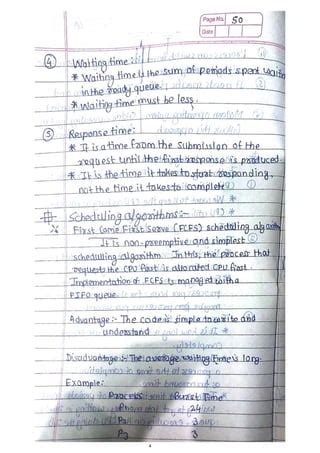 Page No. 50
Date
④ Waiting time:
* Waiting time is the sum of periods spent waiting
in the ready queue.
* Waiting time must be less.
⑤ Response time:
* It is a time from the submission of the
request until the first response is produced.
* It is the time it takes to start responding,
not the time it takes to complete
Scheduling algorithms:-
* First Come First Serve (FCFS) scheduling algorithm
It is non-preemptive and simplest
scheduling algorithm In this, the process that
requests the CPU first is allocated CPU first.
Implementation of FCFS is managed with a
FIFO queue.
Advantage:- The code is simple to write and
understand
Disadvantage:- The average waiting time is long.
Example:
Process Burst Time
P1 24
P2 3
P3 3
4